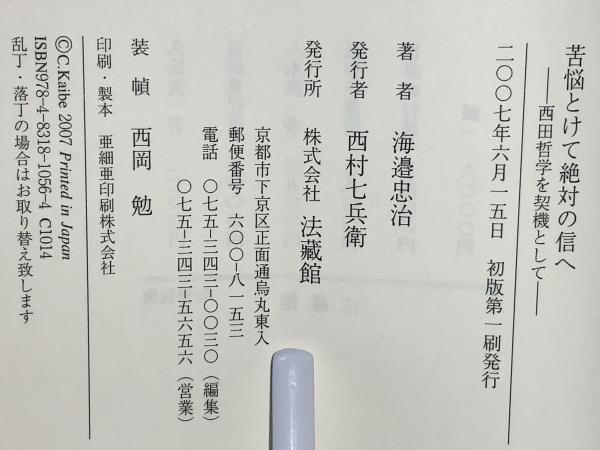 苦悩とけて絶対の信へ
──西田哲学を契機として──
二〇〇七年六月一五日　初版第一刷発行
著　者　海邉忠治
発行者　西村七兵衛
発行所　株式会社 法藏館
京都市下京区正面通烏丸東入
郵便番号　六〇〇-八一五三
電話　〇七五-三四三-〇〇三〇（編集）
〇七五-三四三-五六五六（営業）
装　幀　西岡　勉
印刷・製本　亜細亜印刷株式会社
©C.Kaibe 2007 Printed in Japan
ISBN978-4-8318-1056-4 C1014
乱丁・落丁の場合はお取り替え致します